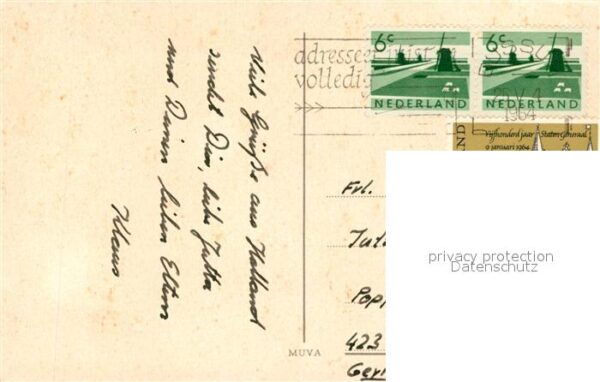 Viele Grüße aus Holland
sendet Dir, liebe Jutta
und Deinen lieben Eltern
Klaus
adresseer juist en
volledig
1964
6c
NEDERLAND
6c
NEDERLAND
Vijfhonderd jaar Staten Generaal
9 januari 1964
Frl.
Jutt
Popp
423
Ger
MUVA
privacy protection
Datenschutz